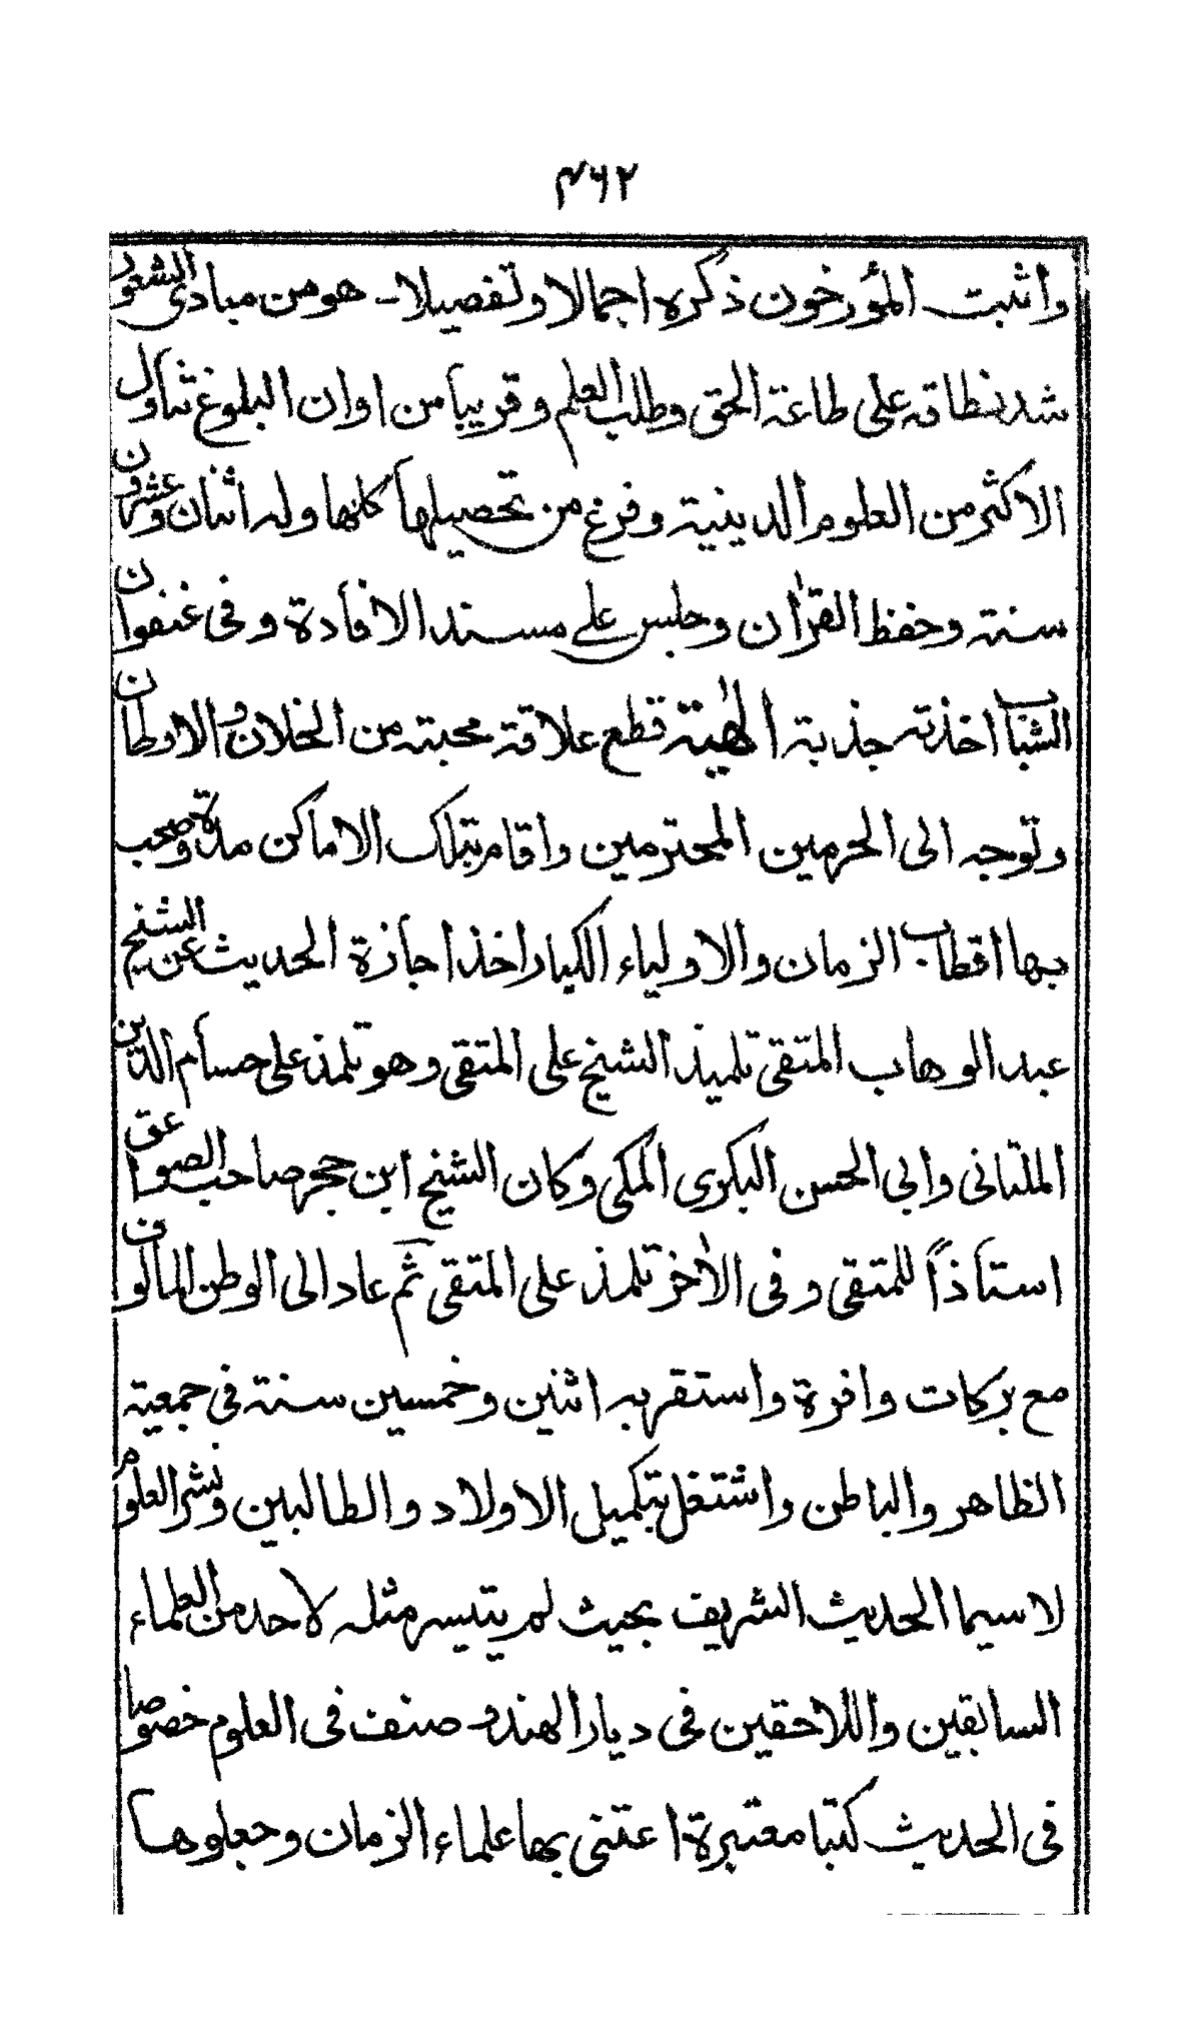 ۴۶۲
واثبت المؤرخون ذكره اجمالا وتفصيلا۔ هو من مبادى الشعور
شد نطاقه على طاعة الحق وطلب العلم وقريبا من اوان البلوغ تناول
الاكثر من العلوم الدينية وفرغ من تحصيلها كلها وله اثنان وعشرون
سنة وحفظ القرآن وجلس على مسند الافادة وفى عنفوان
الشباب اخذته جذبة الٰهية قطع علاقة محبته من الخلان والاوطان
وتوجه الى الحرمين المحترمين واقام بتلك الاماكن مدة وصحب
بها اقطاب الزمان والاولياء الكبار اخذ اجازة الحديث عن الشيخ
عبد الوهاب المتقى تلميذ الشيخ على المتقى وهو تلمذ على حسام الدين
الملتانى وابى الحسن البكرى المكى وكان الشيخ ابن حجر صاحب الصواعق
استاذاً للمتقى وفى الاٰخر تلمذ على المتقى ثم عاد الى الوطن المالوف
مع بركات وافرة واستقر به اثنين وخمسين سنة فى جمعية
الظاهر والباطن واشتغل بتكميل الاولاد والطالبين ونشر العلوم
لا سيما الحديث الشريف بحيث لم يتيسر مثله لاحد من العلماء
السابقين واللاحقين فى ديار الهند وصنف فى العلوم خصوصا
فى الحديث كتبا معتبرة اعتنى بها علماء الزمان وجعلوها